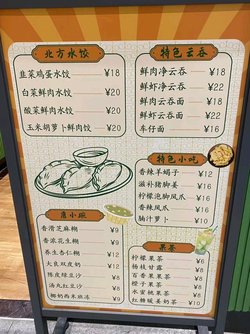 北方水饺
韭菜鸡蛋水饺 ¥18
白菜鲜肉水饺 ¥20
酸菜鲜肉水饺 ¥20
玉米胡萝卜鲜肉饺 ¥20
特色云吞
鲜肉净云吞 ¥18
鲜虾净云吞 ¥22
鲜肉云吞面 ¥18
鲜虾云吞面 ¥22
车仔面 ¥16
特色小吃
香辣羊蝎子 ¥12
滋补猪脚姜 ¥16
柠檬泡脚凤爪 ¥16
香辣凤爪 ¥16
腩汁萝卜 ¥10
唐小碗
香滑芝麻糊 ¥9
香浓花生糊 ¥9
养生杏仁糊 ¥12
大良双皮奶 ¥12
陈皮绿豆沙 ¥9
汤丸红豆沙 ¥9
椰奶西米班冻 ¥9
果茶
柠檬果茶 ¥6
杨枝甘露 ¥8
百香果果茶 ¥8
橙子果茶 ¥8
水蜜桃果茶 ¥8
红糖暖姜奶茶 ¥10